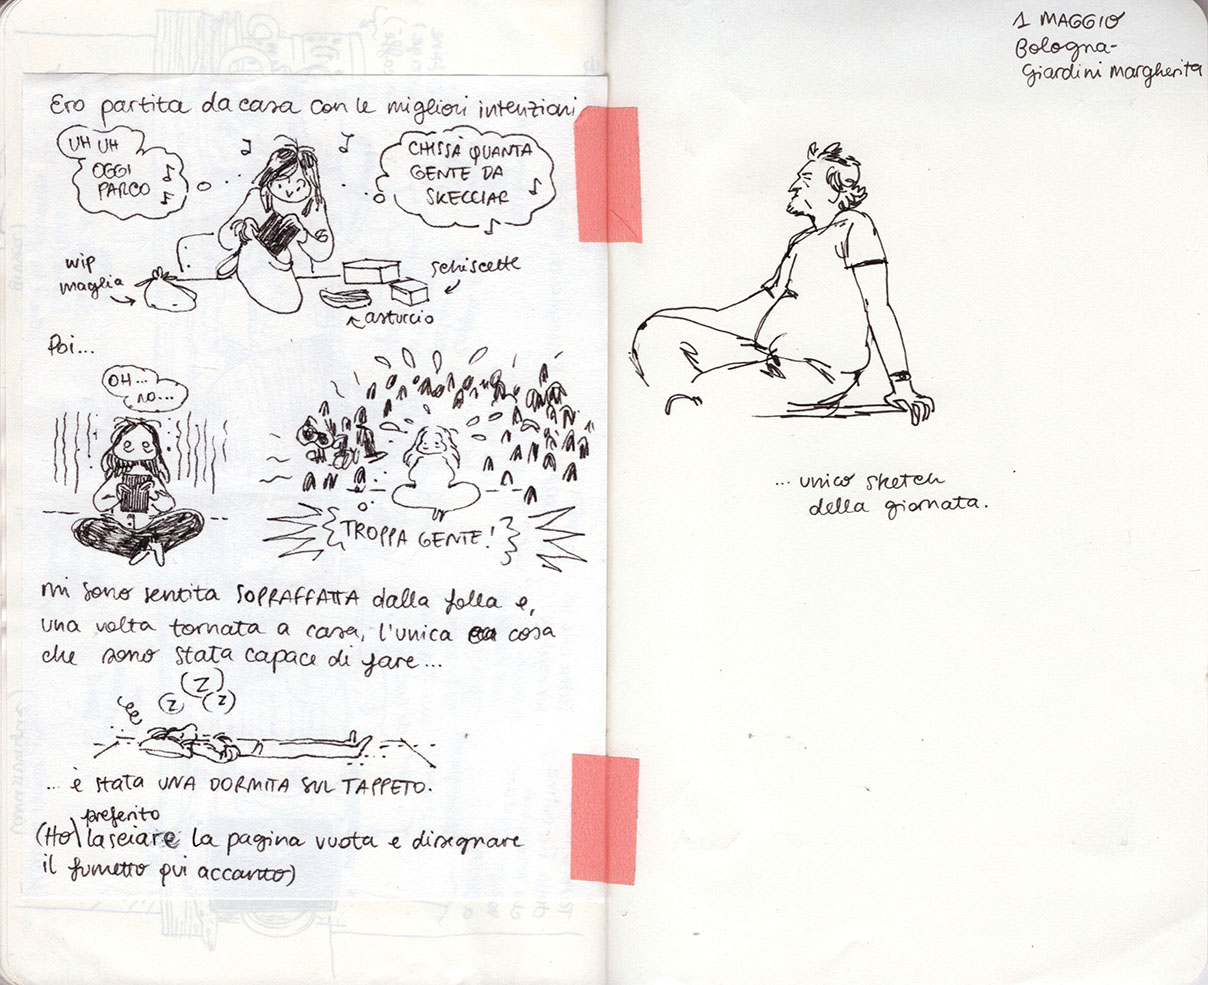 Ero partita da casa con le migliori intenzioni
UH UH
OGGI
PARCO
CHISSÀ QUANTA
GENTE DA
SKECCIAR
wip
maglia
schiscette
astuccio
Poi...
OH...
NO...
TROPPA GENTE!
mi sono sentita SOPRAFFATTA dalla folla e,
una volta tornata a casa, l'unica cosa
che sono stata capace di fare...
Z
Z
Z
... è stata UNA DORMITA SUL TAPPETO.
preferito
(Ho lasciare la pagina vuota e disegnare
il fumetto qui accanto)
1 MAGGIO
Bologna-
Giardini Margherita
... unico sketch
della giornata.